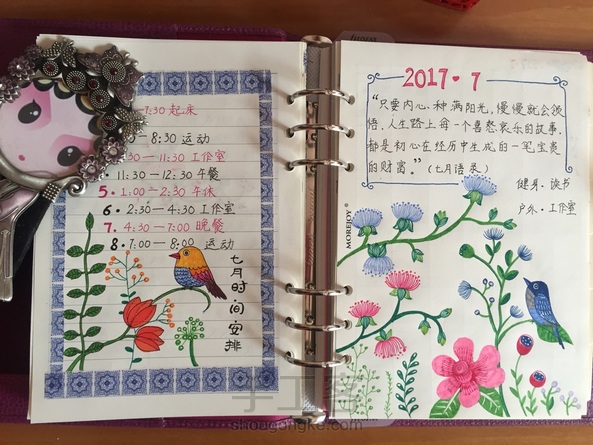 7:30 起床
8:30 运动
30—11:30 工作室
11:30—12:30 午餐
5·1:00—2:30 午休
6·2:30—4:30 工作室
7. 4:30—7:00 晚餐
8·7:00—8:00 运动
七月时间安排
MOREJOY
2017·7
“只要内心种满阳光,慢慢就会领
悟,人生路上每一个喜怒哀乐的故事,
都是初心在经历中生成的一笔宝贵
的财富。”(七月语录)
健身·读书
户外·工作室
手工客
shougongke.com